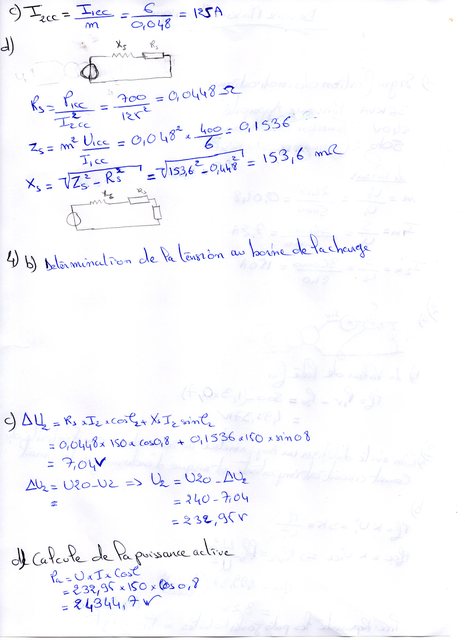 c) I2cc = I1cc/m = 6/0,048 = 125A
d)
Xs Rs
Rs = P1cc/I²2cc = 700/125² = 0,0448 Ω
Zs = m² U1cc/I1cc = 0,048² × 400/6 = 0,1536
Xs = √Zs² - Rs² = √153,6² - 0,448² = 153,6 mΩ
Xs Rs
4) b) Détermination de la tension au borne de la charge
c) ΔU2 = Rs × I2 × cosφ2 + Xs I2 sinφ2
= 0,0448 × 150 × cos0,8 + 0,1536 × 150 × sin 0 8
= 7,04V
ΔU2 = U20 - U2 => U2 = U20 - ΔU2
= = 240 - 7,04
= 232,95V
d) Calcule de la puissance active
Pa = U × I × cosφ
= 232,95 × 150 × cos 0,8
= 24344,7 V